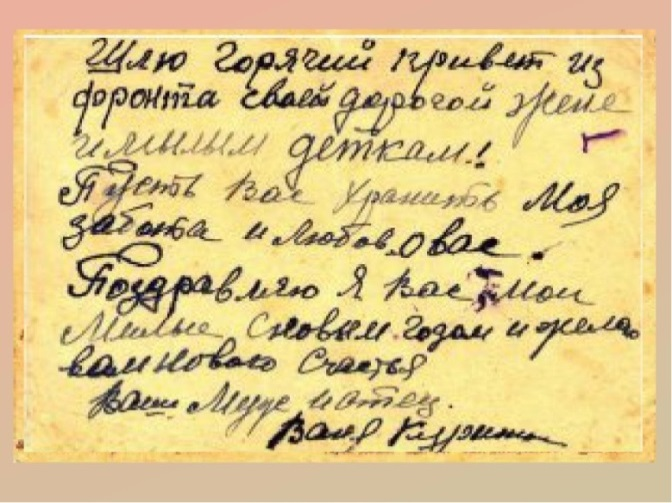 Шлю горячий привет из
фронта своей дорогой жене
и милым деткам!
Пусть Вас хранить Моя
забота и любов. о вас.
Поздравляю я Вас, мои
Милые С новым годом и желаю
вам нового счастья
Ваш Муж и отец.
Ваня